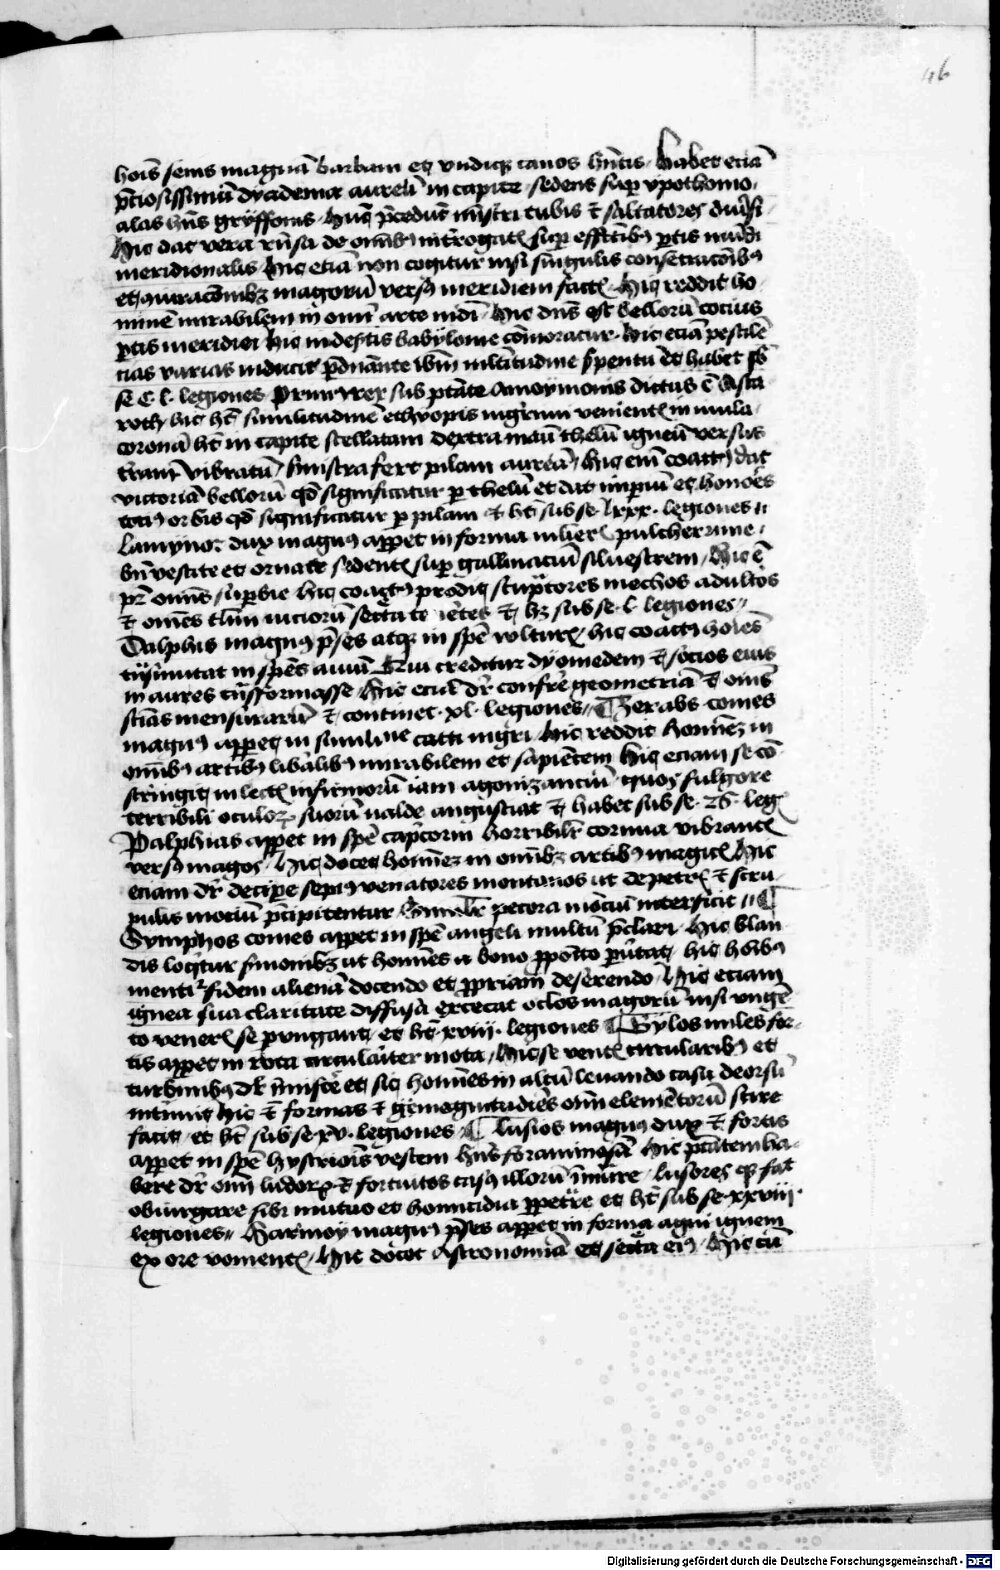 46
hoīs senis magnā barbam et vndiqz canos hn̄tis · habet eciā
p̄ciosissimū dyadema aureū in capite · sedens sup ypothomo
alas hn̄s gryffonis · hūc p̄cedūt mīstri tubis et saltatores diūsi
hic dat vera rn̄sa de om̄ibꝰ īt̄rogatꝭ sup effctibꝰ ꝑtis mūdi
meridionalis hic etiā non cogitur nisi singulis consecracōibꝰ
et ꝯiuracōnibꝫ magorū versꝰ meridiem factꝭ · hic reddit ho
minē mirabilem in omī arte · hic dn̄s est bellorū tocius
ꝑtis meridiei hic in de\u017ftis babylonie cōmoratur · hic etiā pestilē
cias varias inducit p̄dnānte in multitudine spirituū et habet sb
se C · l · legiones · Primꝰ rex sub ptāte Amoymonis dictus ē Asta
roth · hic hꝫ similitudinē ethyopis nigrum venientꝭ in mula
coronā hꝫ in capite stellatam dextra manū thelū igneū versus
t̄ram vibratū · sinistra fert pilam aureā · hic em̄ coactꝰ dat
victoriā bellorū qd significatur ꝑ thelū et dat imꝑiū et honores
totiꝰ orbis qd significatur ꝑ pilam et hꝫ sub se · lxxx · legiones
Lamyno dux magnꝰ appet in forma mulierꝭ pulcherrime
bn̄ vestite et ornate sedentꝭ sup gallinatiū siluestrem · hic ē
pr̄ omīs suꝑbie hic coactꝰ prodit scuptores mechos adultos
et om̄es viciorū et hꝫ sub se · l · legiones
Dalphis magnꝰ p̄ses atqꝫ in spē vulturꝭ · hic coactꝰ hoīes
tn̄smutat in spēs auiū Qui creditur dyomedem et socios eius
in aues tn̄sformasse · hic eciā dr̄ conferre geometriā et om̄s
sciās mensurarū et continet · xl · legiones · Gerabs comes
magnꝰ appet in simil catti nigri · hic reddit hominē in
om̄ibꝰ artibꝰ libalibꝰ mirabilem et sapiētem hic eciam se cō
stringit in lectꝭ infirmorū iam agonizanciū · quos fulgore
terribili oculoꝝ suorū valde angustiat et habet sub se · 26 · legꝭ
Palphias appet in spē cap̄corni horribilr̄ cornua vibrantꝭ
versꝰ magos · hic docet hominē in om̄ibꝫ artibꝰ magicꝭ hic
eciam dr̄ deciꝑe sepiꝰ venatores montarios ut de petrꝭ et scru
pulis mociū p̄cipitentur · Similr̄ pecora mociū interficit
Symphos comes appet in spē angeli multū p̄clari · hic blan
dis loqtur s̄monibꝫ ut homīes a bono ꝓposito ꝑuertat · hic hoībꝰ
mentit fidem alienā docendo et ꝓpriam deserendo · hic etiam
ignea sua claritate diffusa excecat oclos magorū nisi vngē
to venerꝭ se ꝑungant · et hꝫ · xviij · legiones Gylos miles for
tis appet in rota circulariter mota · hic se ventꝭ circularibꝰ et
turbinibꝰ dr̄ īmiscē et sic homīes in altū leuando casu deorsū
mittit hic et formas et magnitudīes om̄i elemētorū scire
facit · et hꝫ sub se · xv · legiones · Lusios magnꝰ dux et fortis
appet in spē hystrionis vestem hn̄s foraminosā · hic ptātem ha
bere dr̄ om̄i ludoꝝ et fortuitos casꝰ illorū īmittē · lusores qꝫ fac
obiurgare sibi mutuo et homicidia ꝑpetrare et hꝫ sub se · xxviij ·
legiones · Harmoy magnꝰ p̄ses appet in forma agni ignem
ex ore vomentꝭ · hic docet Astronomiā et secreta eiꝰ · hic cū
Digitalisierung gefördert durch die Deutsche Forschungsgemeinschaft - DFG